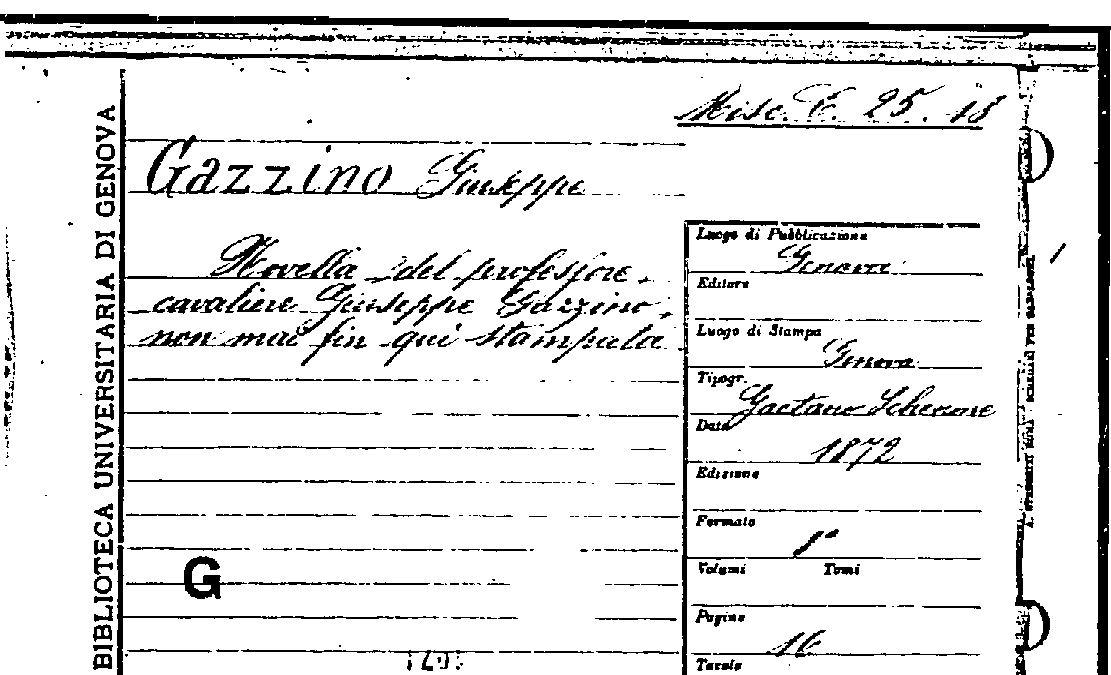 Misc. E. 25. 18
BIBLIOTECA UNIVERSITARIA DI GENOVA
Gazzino Giuseppe
Novella del professore
cavaliere Giuseppe Gazzino,
non mai fin qui stampata
Luogo di Pubblicazione
Genova
Editore
Luogo di Stampa
Genova
Tipogr.
Gaetano Schenone
Data
1872
Edizione
Formato
Volumi Tomi
Pagine
16
Tavole
G